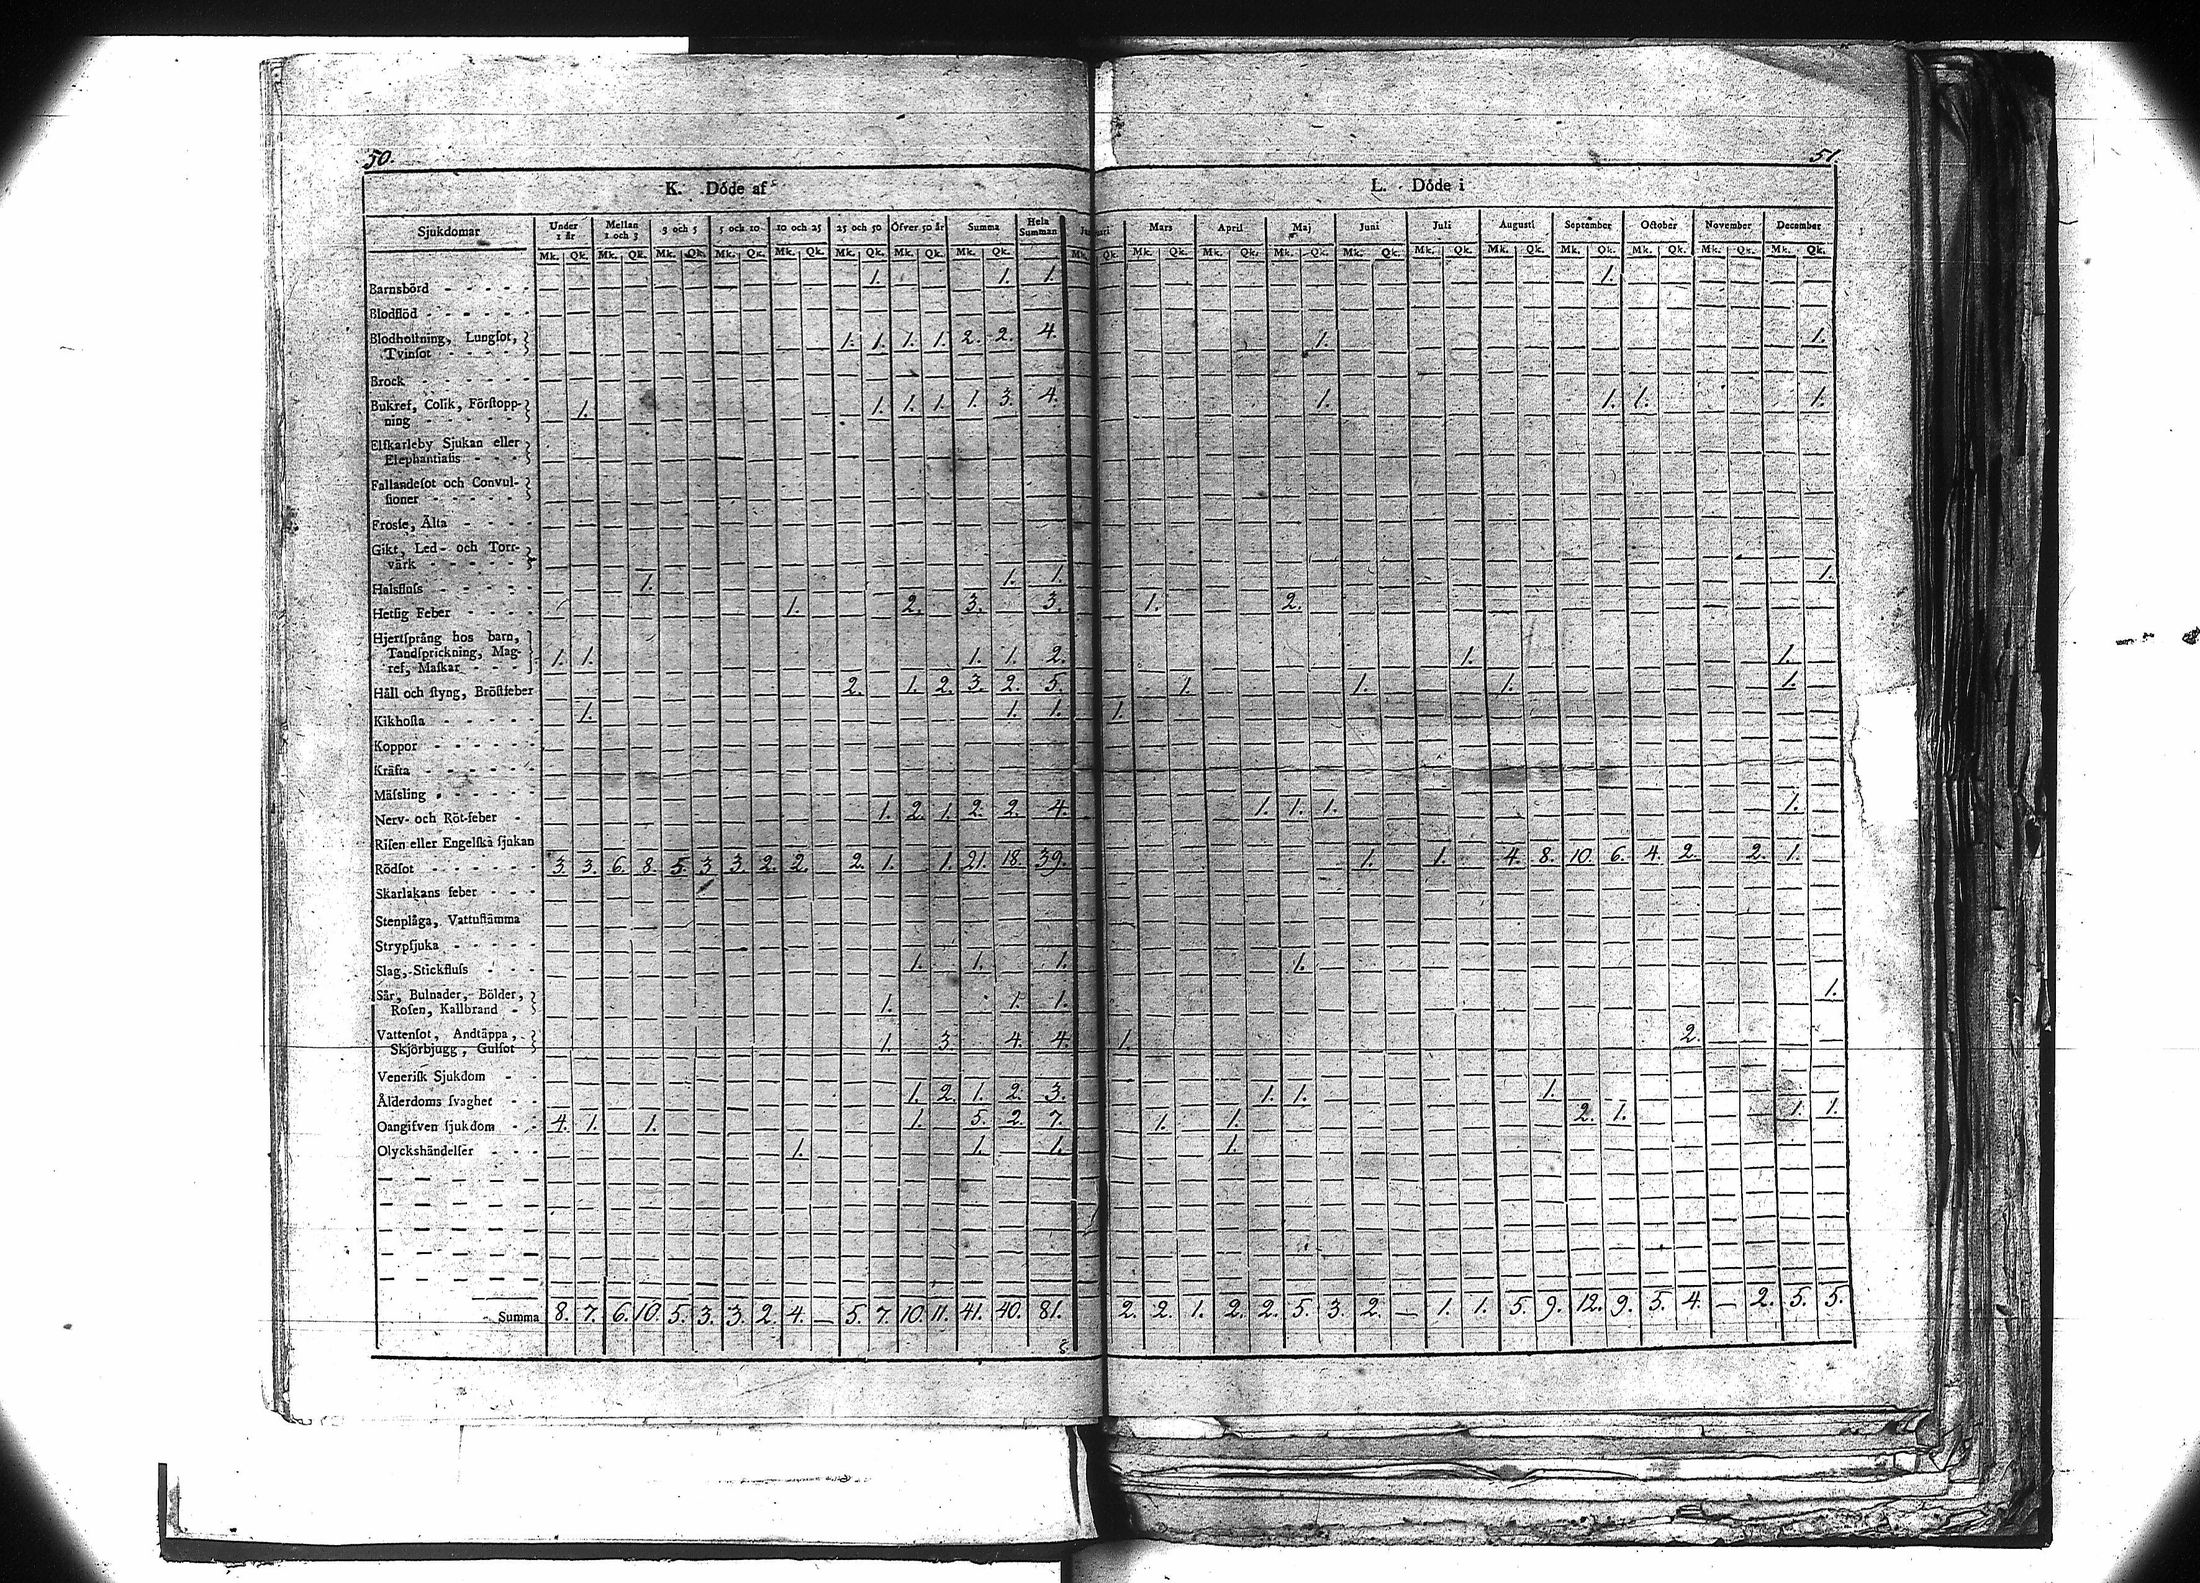 50.
K. Döde af
Sjukdomar Under 1 år Mellan 1 och 3 3 och 5 5 och 10 10 och 25 25 och 50 Öfver 50 år Summa Hela Summan
Mk. Qk. Mk. Qk. Mk. Qk. Mk. Qk. Mk. Qk. Mk. Qk. Mk. Qk. Mk. Qk.
Barnsbörd 1. 1. 1.
Blodflöd
Blodhostning, Lungsot,
Tvinsot 1. 1. 1. 1. 2. 2. 4.
Brock
Bukref, Colik, Förstopp-
ning 1. 1. 1. 1. 1. 3. 4.
Elfkarleby Sjukan eller
Elephantiasis
Fallandesot och Convul-
sioner
Frossa, Älta
Gikt, Led- och Torr-
värk
Halsfluss 1. 1. 1.
Hetsig Feber 1. 2. 3. 3.
Hjertsprång hos barn,
Tandsprickning, Mag-
ref, Maskar 1. 1. 1. 1. 2.
Håll och styng, Bröstfeber 2. 1. 2. 3. 2. 5.
Kikhosta 1. 1. 1.
Koppor
Kräfta
Mässling
Nerv- och Röt-feber 1. 2. 1. 2. 2. 4.
Risen eller Engelska sjukan
Rödsot 3. 3. 6. 8. 5. 3. 3. 2. 2. 2. 1. 1. 21. 18. 39.
Skarlakans feber
Stenplåga, Vattustämma
Strypsjuka
Slag, Stickfluss 1. 1. 1.
Sår, Bulnader, Bölder,
Rosen, Kallbrand 1. 1. 1.
Vattensot, Andtäppa,
Skjörbjugg, Gulsot 1. 3. 4. 4.
Venerisk Sjukdom
Ålderdoms svaghet 1. 2. 1. 2. 3.
Oangifven sjukdom 4. 1. 1. 1. 5. 2. 7.
Olyckshändelser 1. 1. 1.
Summa 8. 7. 6. 10. 5. 3. 3. 2. 4. — 5. 7. 10. 11. 41. 40. 81.
51.
L. Döde i
Mars April Maj Juni Juli Augusti September October November December
Qk. Mk. Qk. Mk. Qk. Mk. Qk. Mk. Qk. Mk. Qk. Mk. Qk. Mk. Qk. Mk. Qk. Mk. Qk. Mk. Qk.
1.
1. 1.
1. 1. 1. 1.
1.
1. 2.
1. 1.
1. 1. 1. 1.
1.
1. 1. 1. 1.
1. 1. 4. 8. 10. 6. 4. 2. 2. 1.
1.
1.
1. 2.
1. 1. 1.
1. 1. 2. 1. 1. 1.
1.
2. 2. 1. 2. 2. 5. 3. 2. — 1. 1. 5. 9. 12. 9. 5. 4. — 2. 5. 5.